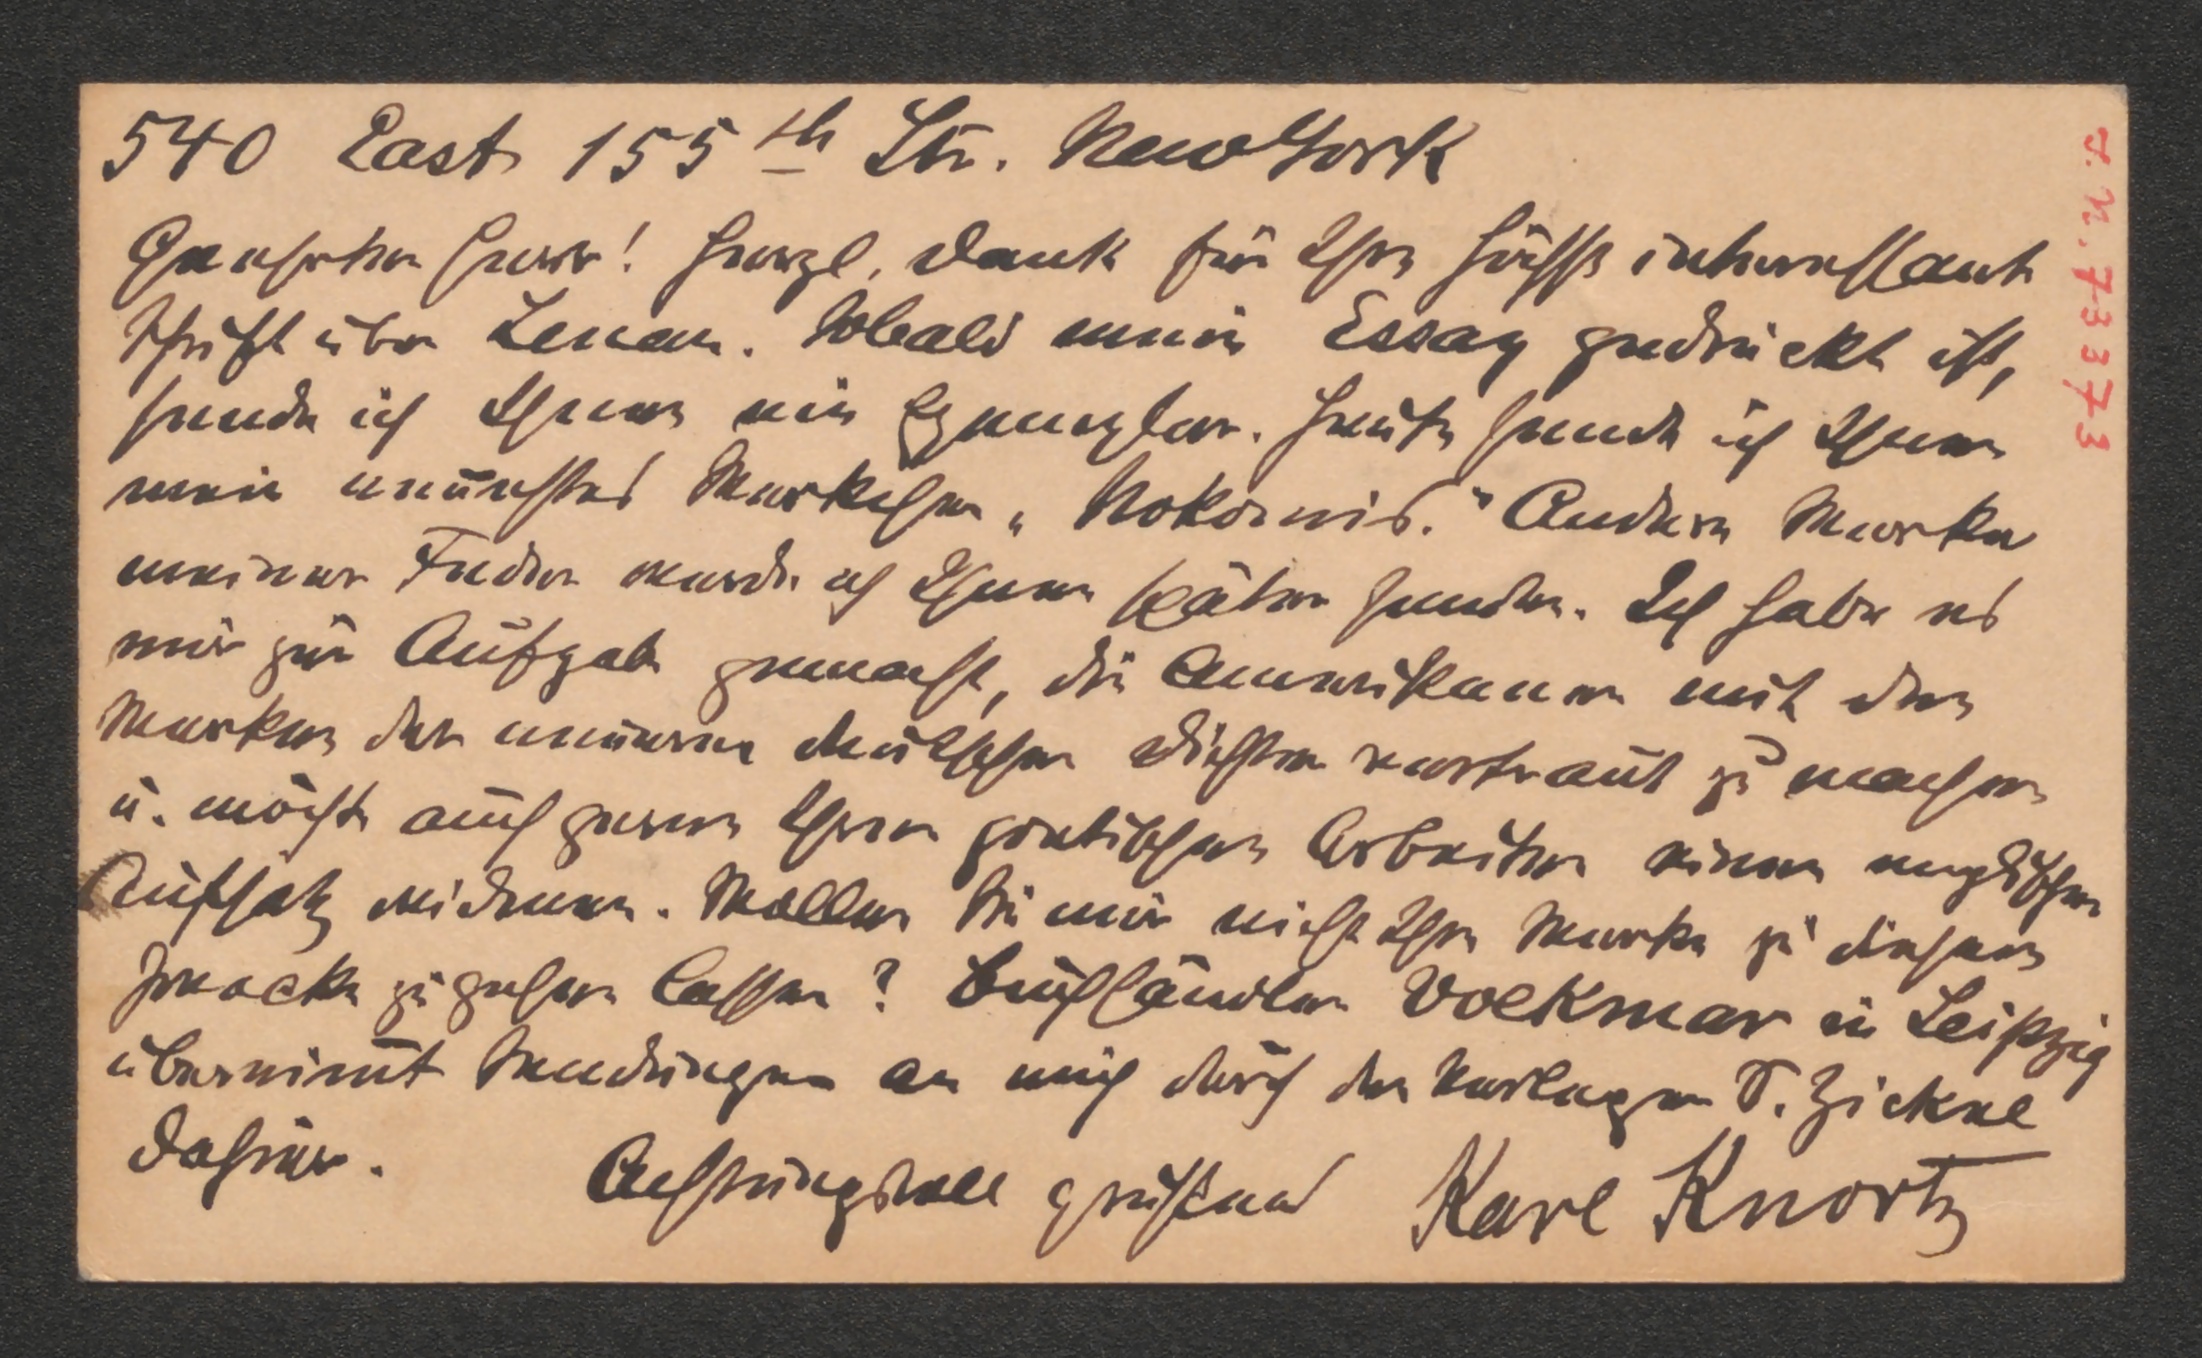 540 East 155th Str. New York
Geehrter Herr! Herzl. Dank für Ihre höchst interessante
Schrift über Lenau. Sobald mein Essay gedruckt ist,
sende ich Ihnen ein Exemplar. Heute sende ich Ihnen
mein neuestes Werkchen „Nokomis." Andere Werke
meiner Feder werde ich Ihnen später senden. Ich habe es
mir zur Aufgabe gemacht, die Amerikaner mit den
Werken der neueren deutschen Dichter vertraut zu machen
u. möchte auch gerne Ihren poetischen Arbeiten einen englischen
Aufsatz widmen. Wollen Sie mir nicht Ihre Werke zu diesem
Zwecke zugehen lassen? Buchhändler Volkmar in Leipzig
übernimt Sendungen an mich durch den Verleger S. Zickel
dahier. Achtungsvoll grüßend Karl Knortz
J. N. 73373